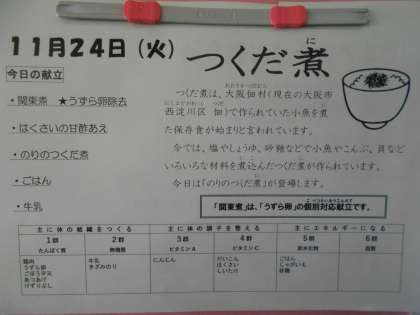 11月24日（火）
つくだ煮
に
今日の献立
・関東煮 ★うずら卵除去
・はくさいの甘酢あえ
・のりのつくだ煮
・ごはん
・牛乳
つくだ煮は、大阪佃村（現在の大阪市
西淀川区 佃）で作られていた小魚を煮
た保存食が始まりと言われています。
今では、塩やしょうゆ、砂糖などで小魚やこんぶ、貝など
いろいろな材料を煮込んだつくだ煮が作られています。
今日は「のりのつくだ煮」が登場します。
「関東煮」は、「うずら卵」の個別対応献立です。
主に体の組織をつくる 主に体の調子を整える 主にエネルギーになる
1群 2群 3群 4群 5群 6群
たんぱく質 無機質 ビタミンA ビタミンC 炭水化物 脂質
鶏肉 牛乳 にんじん だいこん ごはん
うずら卵 きざみのり はくさい じゃがいも
ごぼう平天 しいたけ 砂糖
あつあげ
けずりぶし